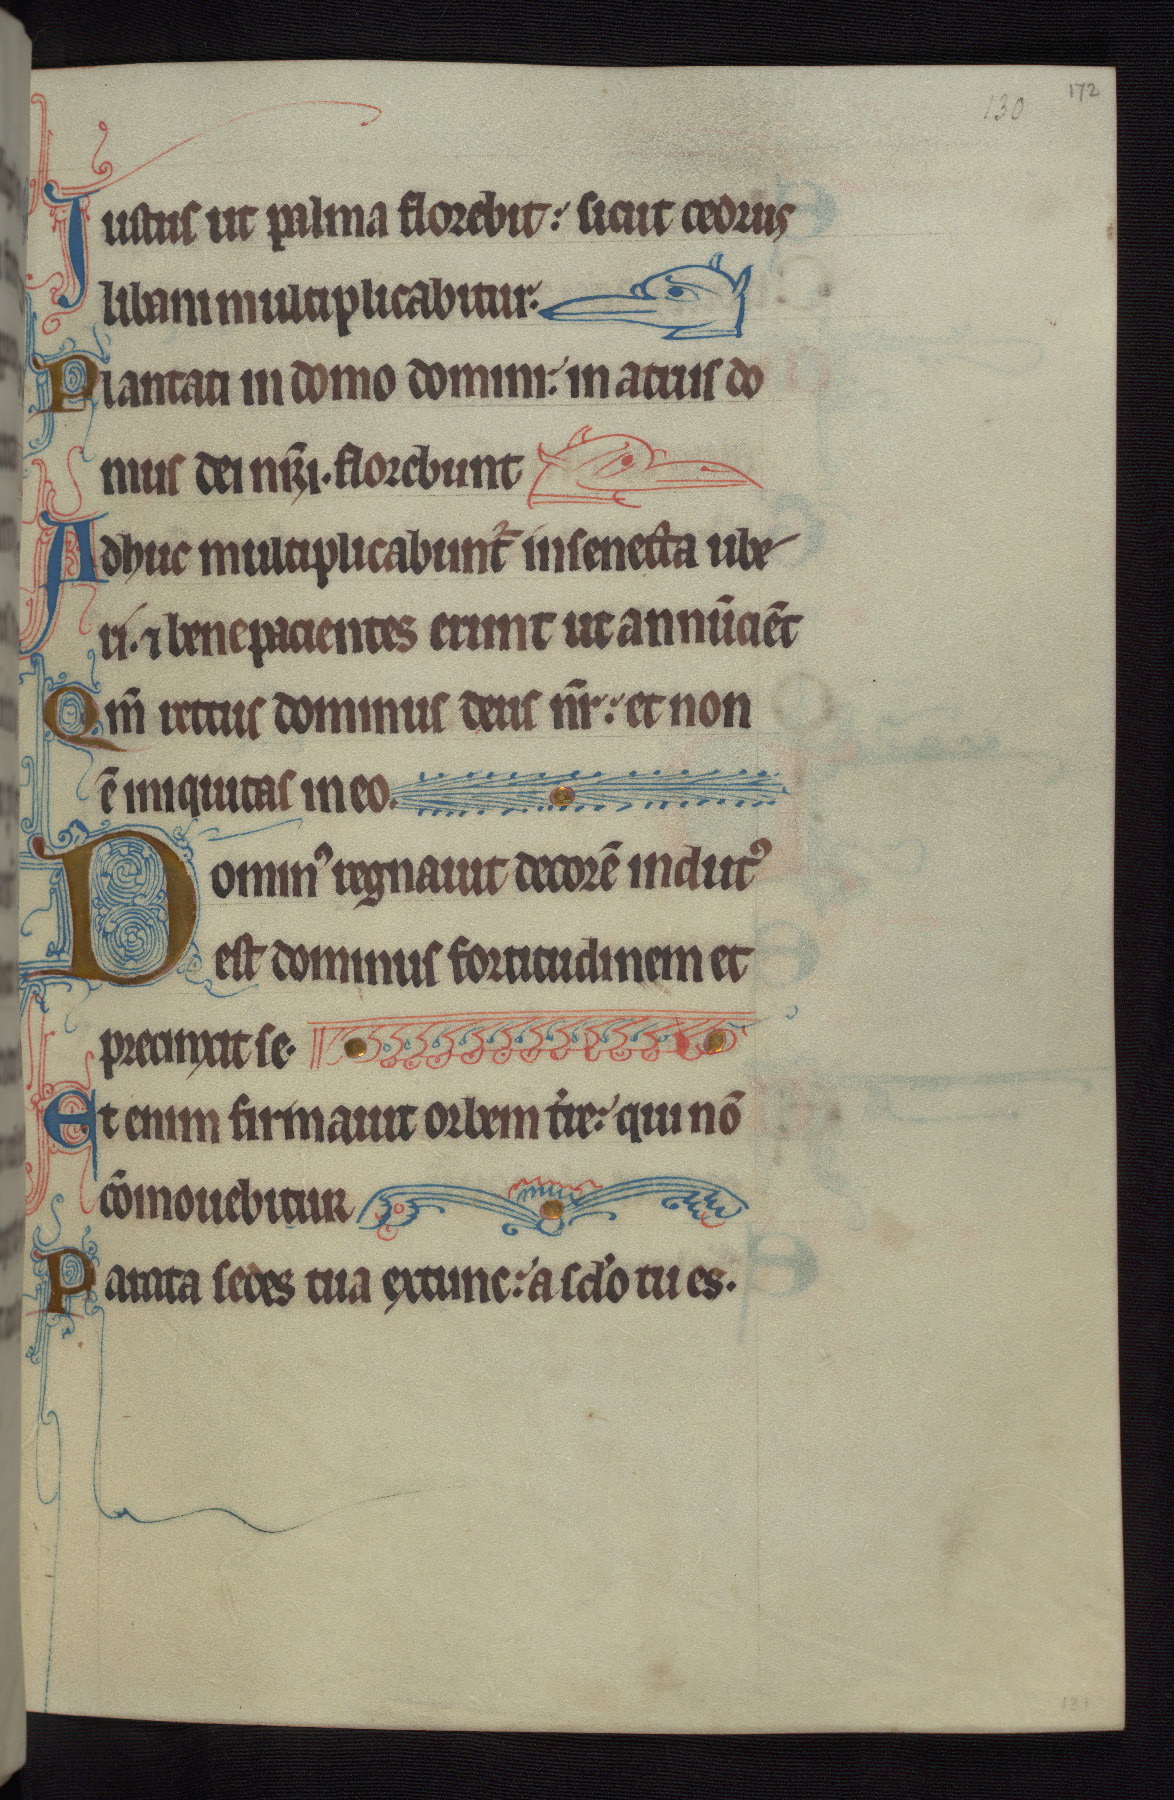 172
130
Iustus ut palma florebit: sicut cedrus
libani multiplicabitur:
Plantati in domo domini: in atriis do
mus dei nr̄i. florebunt
Adhuc multiplicabunt᷑ in senecta ube
ri. ⁊ bene pacientes erunt ut annūciēt
Qm̄ rectus dominus deus nr̄: et non
ē iniquitas in eo.
Dominꝰ regnauit decorē indutꝰ
est dominus fortitudinem et
precinxit se.
Et enim firmauit orbem tr̄e: qui nō
cōmouebitur
Parata sedes tua extunc: a sclo tu es.
131